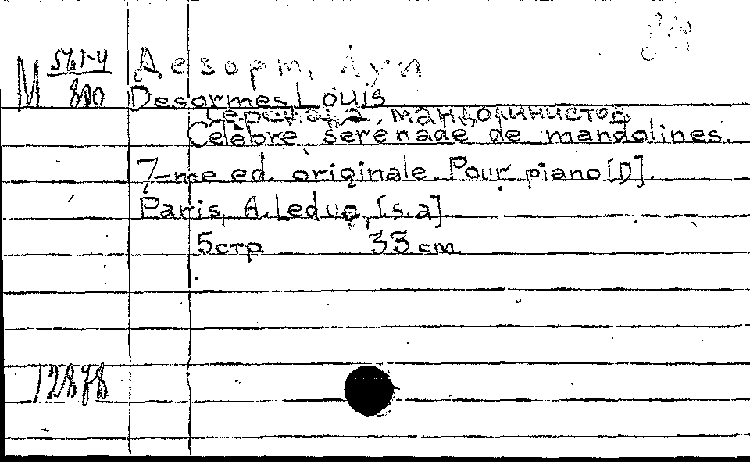 М 561-4/800
Дезорм, Луи
Desormes Louis
Серенада мандолинистов
Celèbre serenade de mandolines.
7-me ed. originale. Pour piano [D].
Paris, A. Leduc, [s.a]
5 стр 33 cm
12878